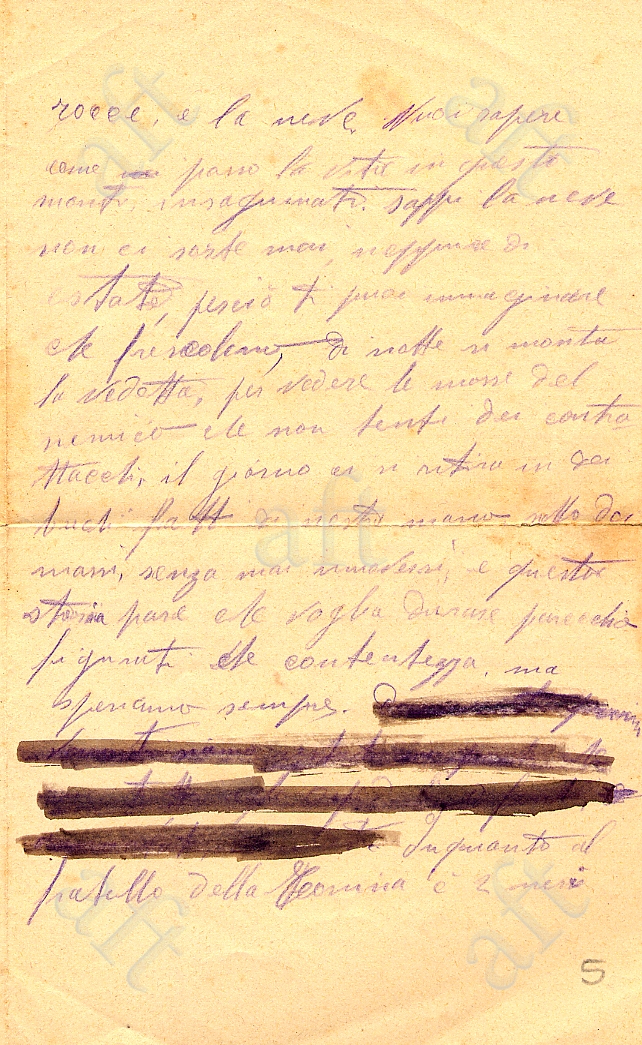 rocce, e la neve. Vuoi sapere
come passo la vita in questi
monti, insaguinati. sappi la neve
non ci sorte mai, neppure di
estate, perciò ti puoi immaginare
che frescolino, di notte si monta
la vedetta, per vedere le mosse del
nemico che non tenti dei contra
ttacchi, il giorno ci si ritira in dei
buchi fatti di nostra mano sotto dei
massi, senza mai muoversi, e questa
storia pare che voglia durare parecchio
figurati che contentezza, ma
speriamo sempre.
Inquanto al
fratello della è 2 mesi
5
aft
aft
aft
aft
aft